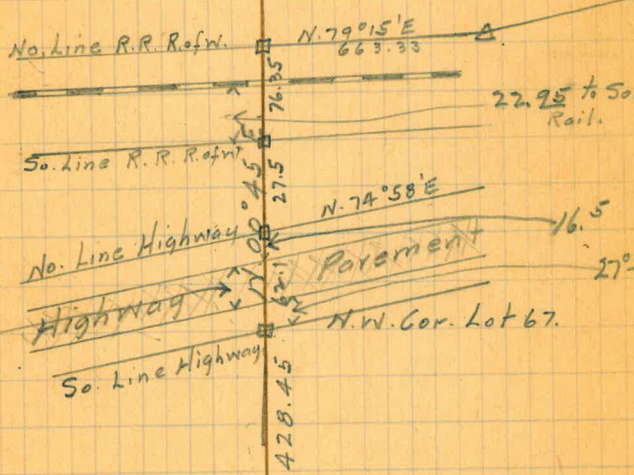 No. Line R.R. R.of W.
N. 79°15'E
663.33
76.35
22.95 to So
Rail.
So. Line R.R. R.of W.
27.5
N. 74°58'E
N 00°45
No. Line Highway
16.5
Pavement
Highway
27°
N.W. Cor. Lot 67.
So. Line Highway
428.45